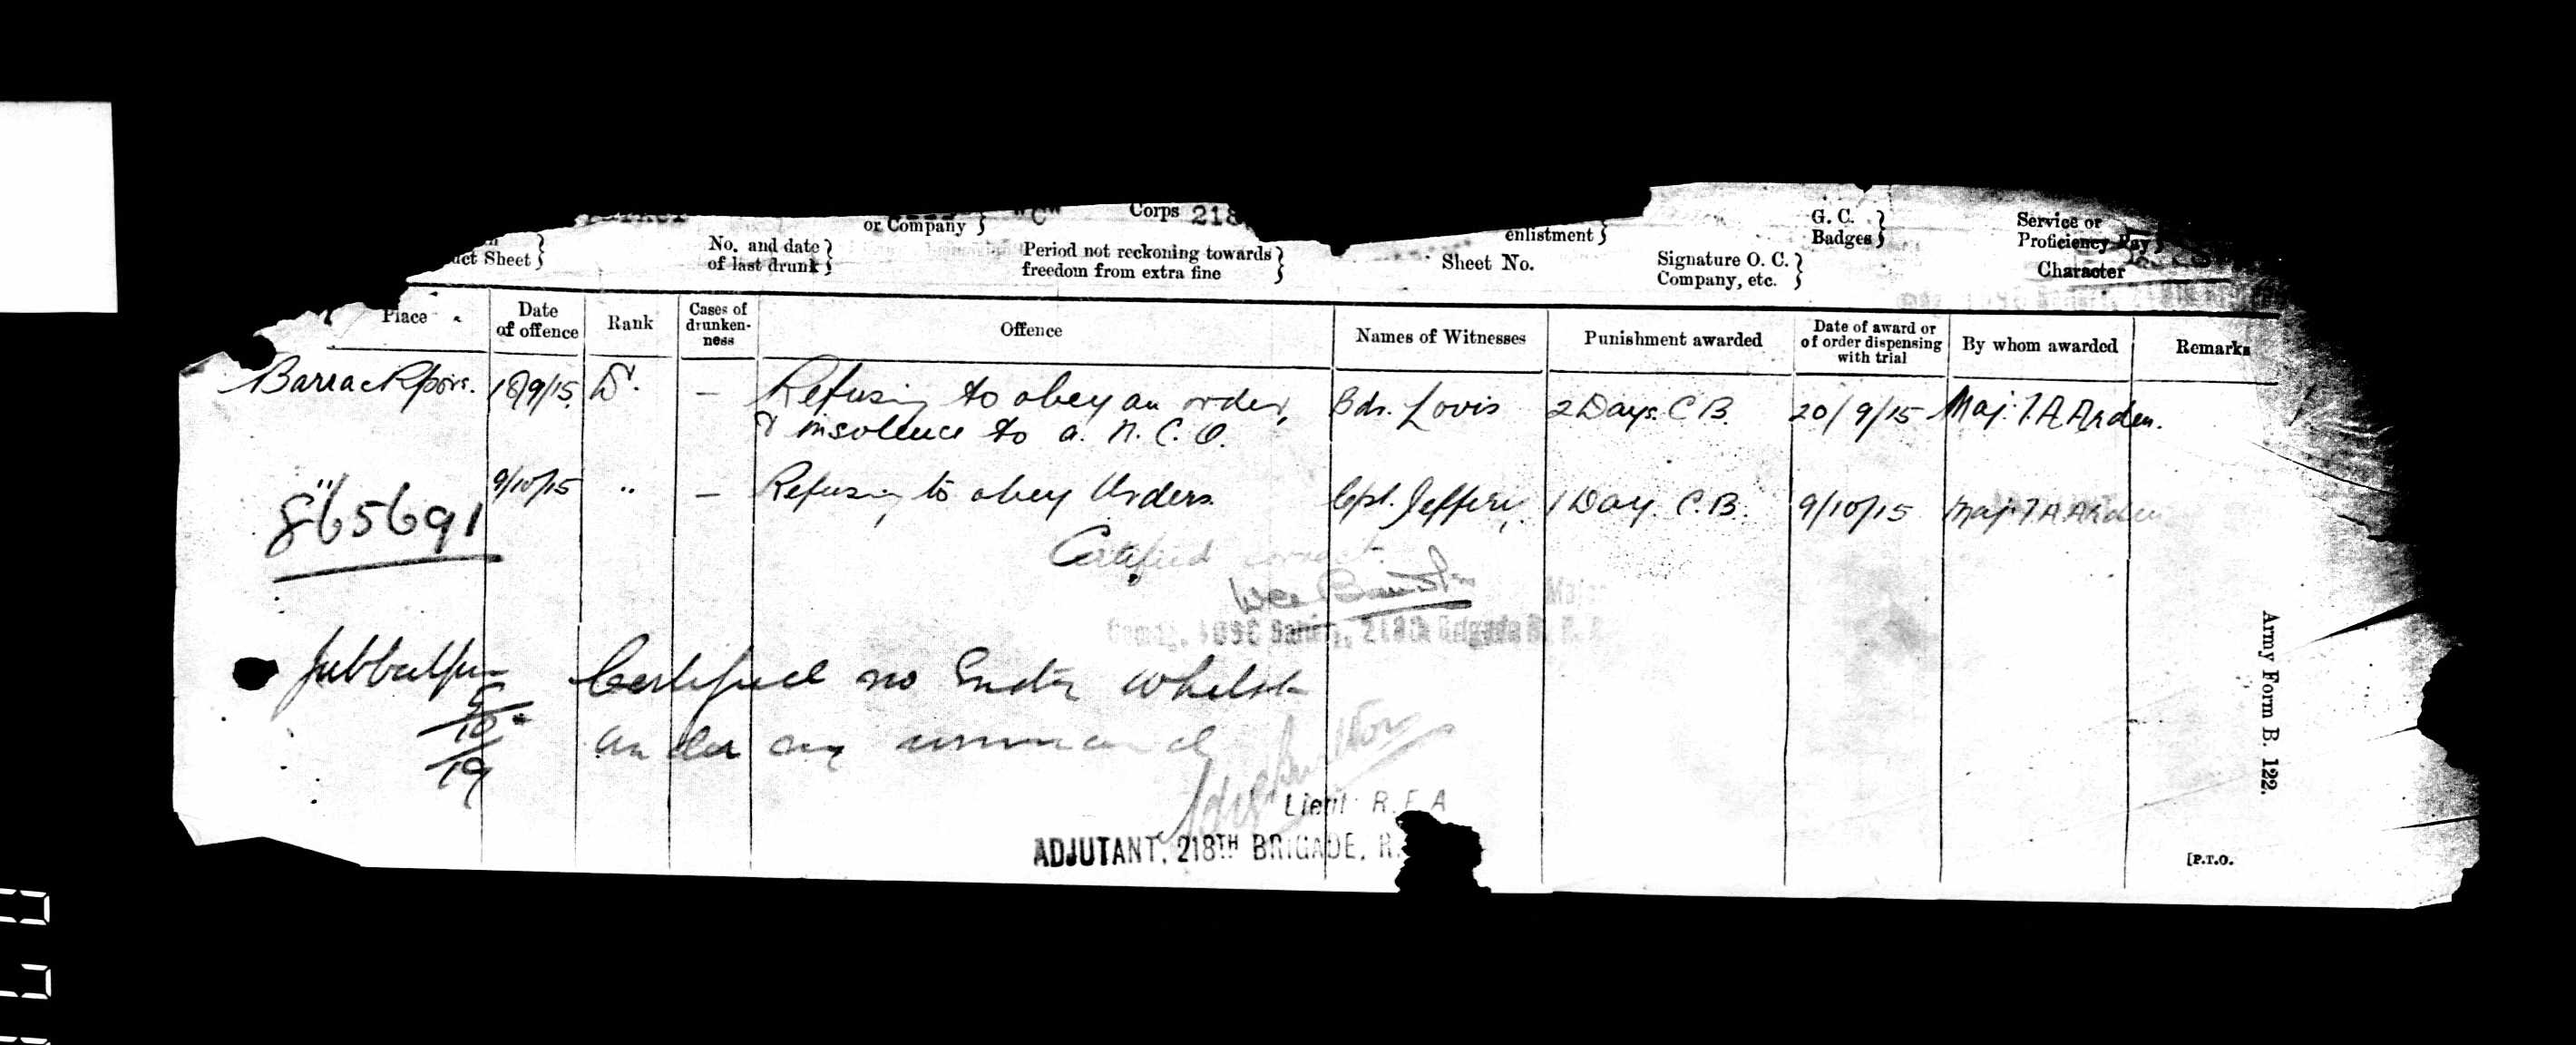 or Company } "C" Corps 218
uct Sheet } No. and date of last drunk } Period not reckoning towards freedom from extra fine } enlistment } Sheet No. Signature O. C. Company, etc. } G. C. Badges } Service or Proficiency Pay } Character
Place Date of offence Rank Cases of drunken-ness Offence Names of Witnesses Punishment awarded Date of award or of order dispensing with trial By whom awarded Remarks
Barrackpore. 18/9/15 Dr. — Refusing to obey an order, Bdr. Lovis 2 Days. C B. 20/9/15 Maj. T. A Arden.
& insolence to a. N. C. O.
" 9/10/15 " — Refusing to obey Orders. Cpl. Jeffery. 1 Day. C. B. 9/10/15 Maj. T. A Arden
865691
Certified correct
Major
Comdg. Batt, 218th Brigade R. F. A
Jubbulpur Certified no Entry whilst
6/10/19 under my command
Lieut R. F. A
ADJUTANT, 218TH BRIGADE, R.
Army Form B. 122.
[P.T.O.